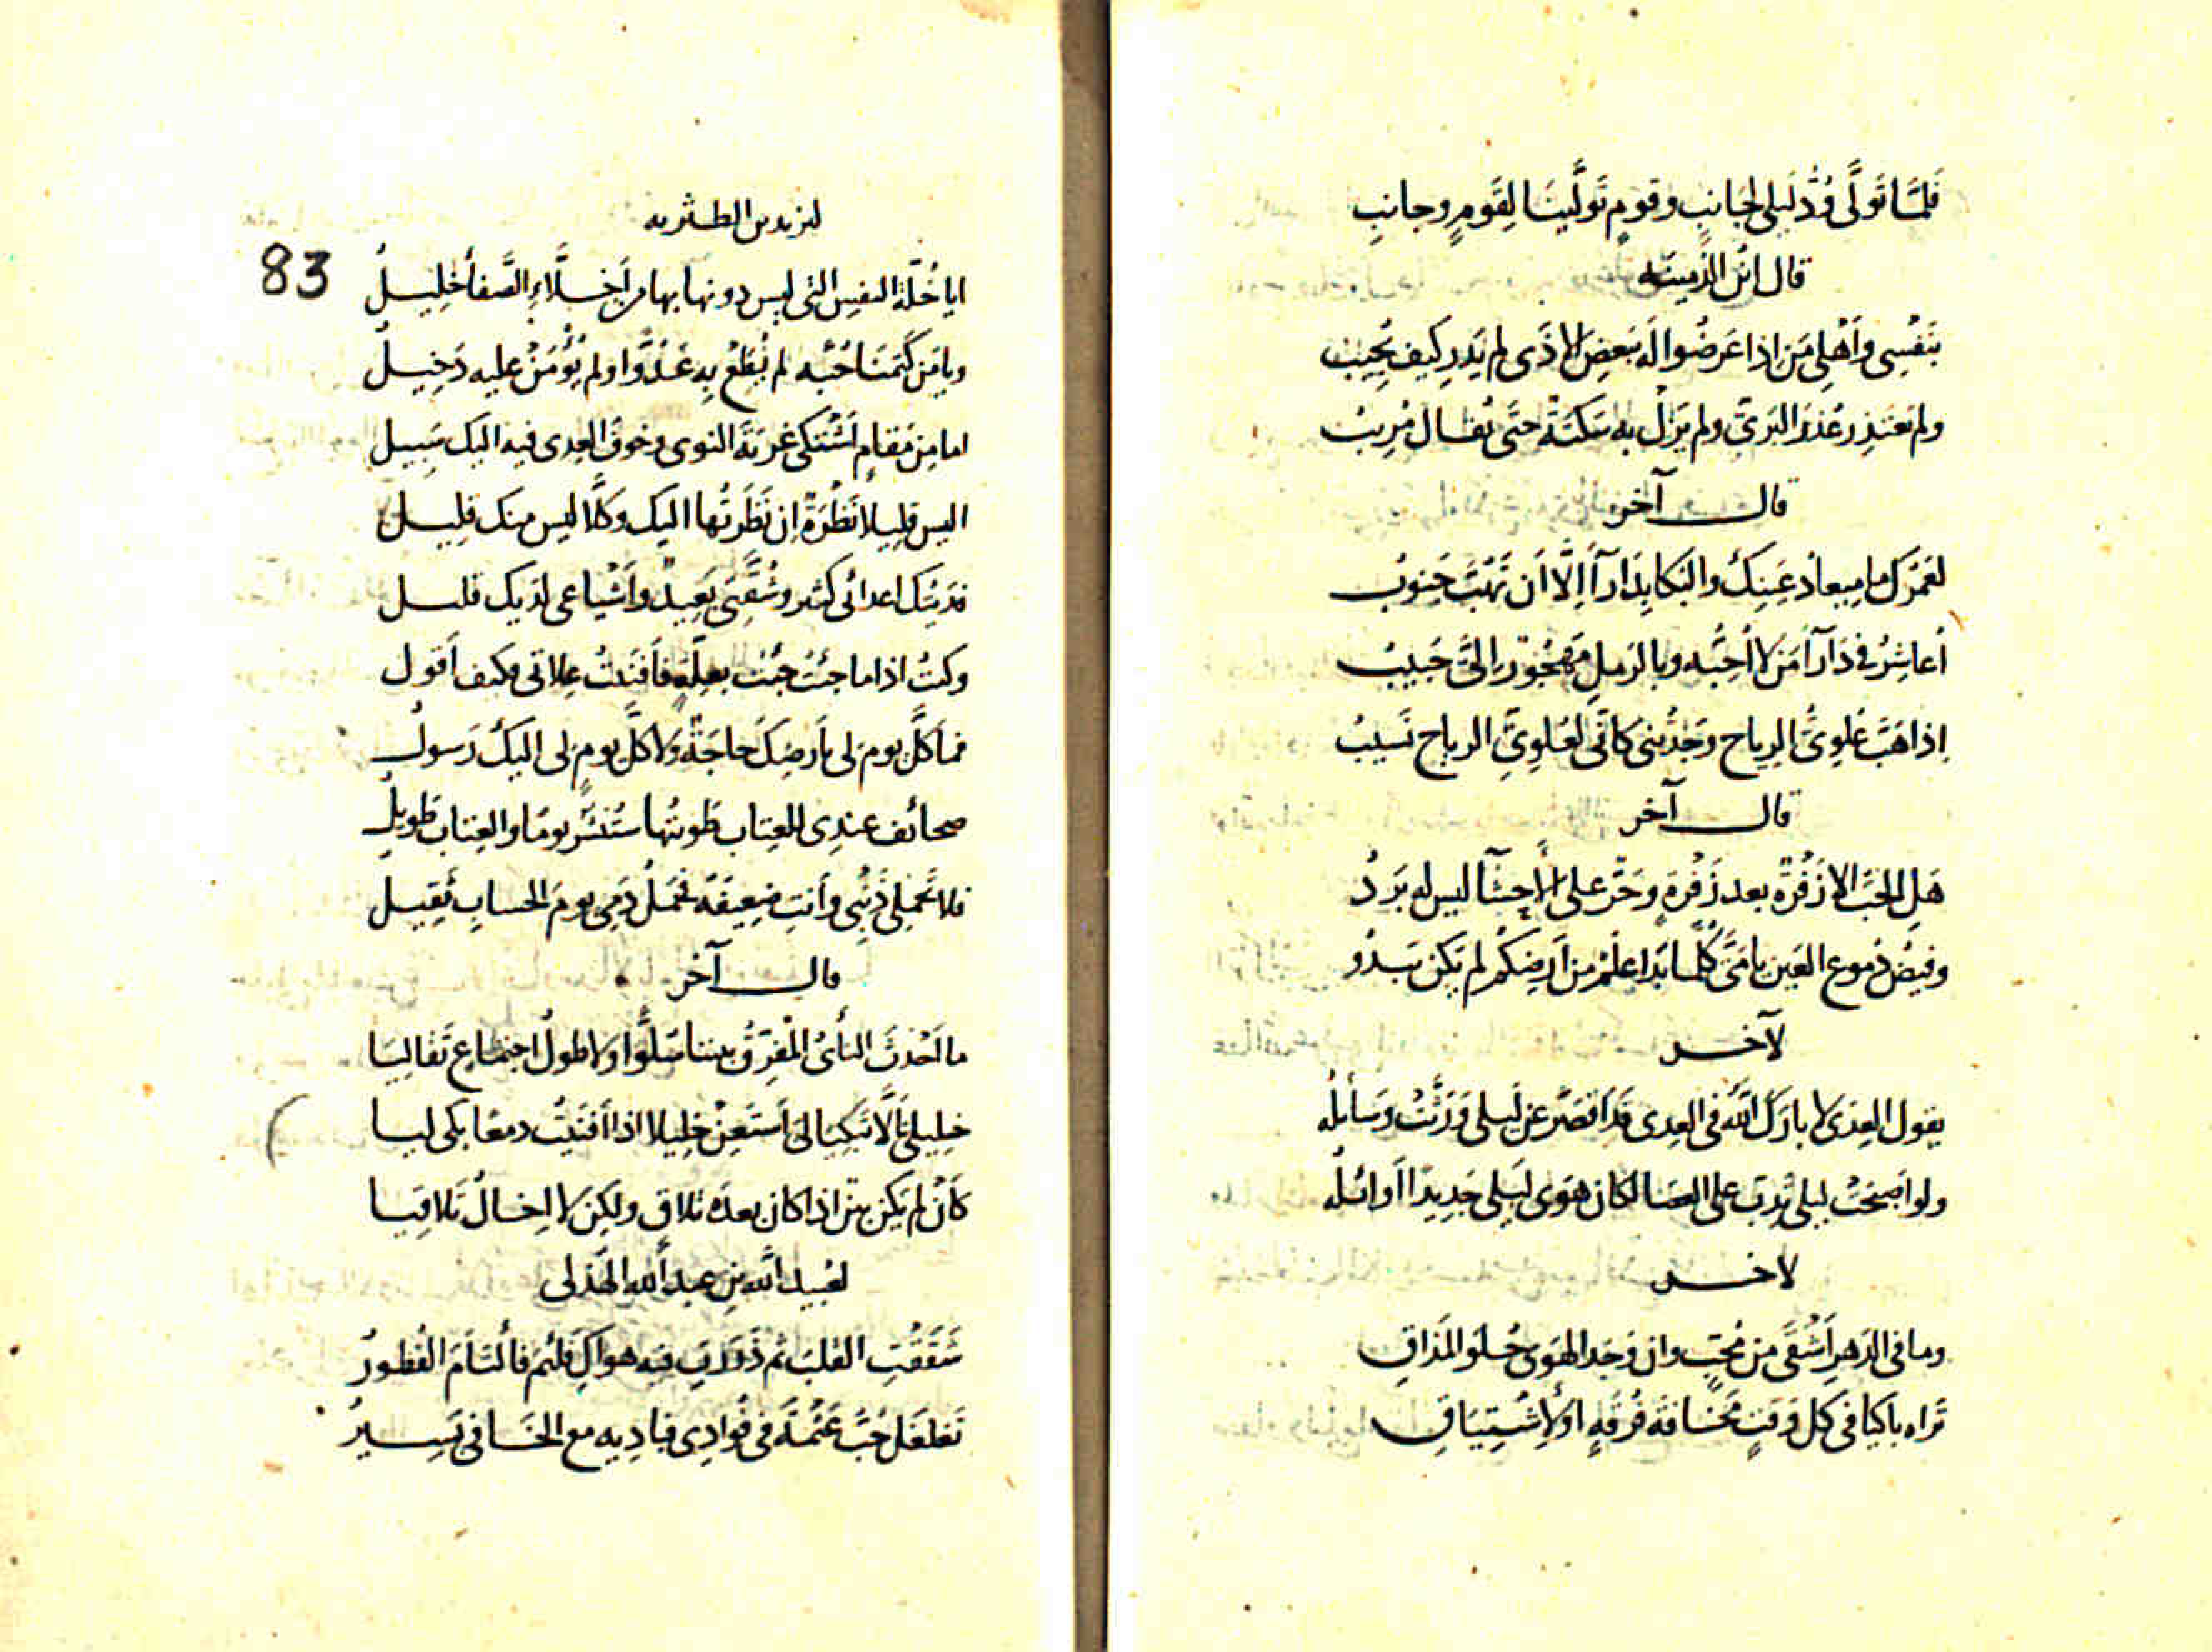 فَلمَّا تَولَّى وُدُّ لَيلى لجَانبٍ وقومٍ تَولَّينَا لِقَومٍ وجانِبِ
قال ابْنُ الدُّمينَه
بنَفْسِى وأَهْلِى مَن اذا عَرضُوا لَه ببَعضِ الاذَى لم يَدرِ كيف يُجِيبُ
ولم يَعتذِر عُذرَ البَرىِّ ولم يَزَلْ به سَكْتَةٌ حتَّى يُقال مُرِيبُ
قال آخر
لعَمْرُكَ ما ميعادُ عَينِكَ والبُكا بِدَارآَ إلَّا أن تَهُبَّ جَنوبُ
أُعاشِرُ فى دَارآَ مَن لا أُحِبُّه وبالرَملِ مَهْجُورٌ إلىَّ حَبيبُ
إذا هَبَّ عُلوِىُّ الرِياحِ وجَدْتُنى كأنِّى لعُلوِىِّ الرياحِ نَسيبُ
قال آخر
هَلِ الحُبّ الا زَفْرَةٌ بعد زَفْرةٍ وحَرٌّ على الأحشآ ليس له بَردُ
وفَيضُ دُموعِ العَين يا مَىَّ كُلَّما بَدا عَلَمٌ من أرضِكُم لم يَكن يَبدُو
لآخر
يقول العِدَى لا بارَكَ اللَّه فى العِدى قَد أقصَر عن لَيلى ورَثَّتْ وَسَايلُه
ولو أصبَحَتْ ليلى تَدِبّ على العَصا لكان هَوى لَيلى جَديدًا أوائلُه
لاخر
وما فى الدَهرِ أشْقَى من مُحِبٍّ وان وَجَد الهَوى حُلوَ المَذاقِ
تَراه باكيا فى كل وَقتٍ مَخافةَ فُرقَةٍ او لأِشْتِيَاقِ
ليزيد بن الطثريه
ايا خُلَّةَ النفسِ التى ليس دونها بها من أخلَّاءِ الصَّفاَ خَلِيلُ
ويا مَن كَتَمنَا حُبَّه لم يُطَعْ بِه عَدُوًّا ولم يُؤْمَنْ عليه دَخِيلُ
اما مِن مَقامٍ أشتكى غربَةَ النوى وخوفَ العِدى فيه اليكِ سَبِيل
اليس قليلاً نَظْرَةٌ إن نَظَرتُها اليكِ وكَلَّا ليس منك قلِيل
فدَيتُكِ اعدائى كثير وشُقَّتِى بَعِيدٌ وأشْياعى لدَيك قليل
وكنتُ اذا ما جئتُ جئتُ بعِلَّةٍ فأفنَيتُ عِلاتى وكيف أقول
فما كلَّ يوم لى بأرضِكِ حاجَةٌ ولا كلَّ يومٍ لى اليكِ رَسولُ
صحائف عندِى للعِتابِ طَويتُها ستُنشَر يومًا والعِتابُ طَويلُ
فلا تَحْمِلى ذَنْبِى وأنتِ ضَعِيفَةٌ فحَملُ دَمِى يومَ الحسابِ ثَقِيل
قال آخر
ما أحْدَثَ النأىُ المُفرِّقُ بيننا سُلُوًّا ولا طولُ اجتماعٍ تَقاليَا
خليلىَّ الَّا تَبكِيَا لى أستَعِنْ خلِيلا اذا أفنَيتُ دمعًا بكى ليا
كأنْ لم يَكن بَين اذا كان بعدَه تلاقٍ ولكِن لا اِخالُ تَلاقِيَا
لعُبيد اللَّه بن عبد اللَّه الهُذَلى
شَقَقْتِ القلبَ ثم ذَرَرتِ فيه هواكِ فَلِئمَ فالتَأمَ الفُطورُ
تَغلغَل حُبُّ عَثْمَةَ فى فُؤادِى فبادِيه مع الخافى يَسِيرُ
83